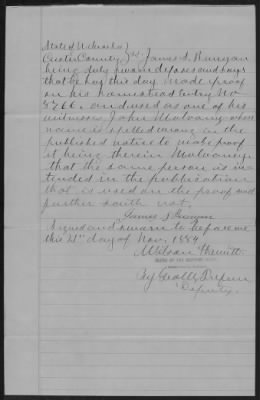 State of Nebraska }
Custer County } ss James S. Runyan
being duly sworn deposes and says
that he has this day made proof
on his homestead Entry No
5766. and used as one of his
witnesses, John Mulvany whose
name is spelled wrong in the
published notice to make proof
it being therein Mulvaney.
that the same person is in
tended in the publication
that is used on the proof and
further saith not.
James S Runyan
Signed and sworn to before me
this 21st day of Nov. 1884
Wilson Hewitt
By
Deputy.